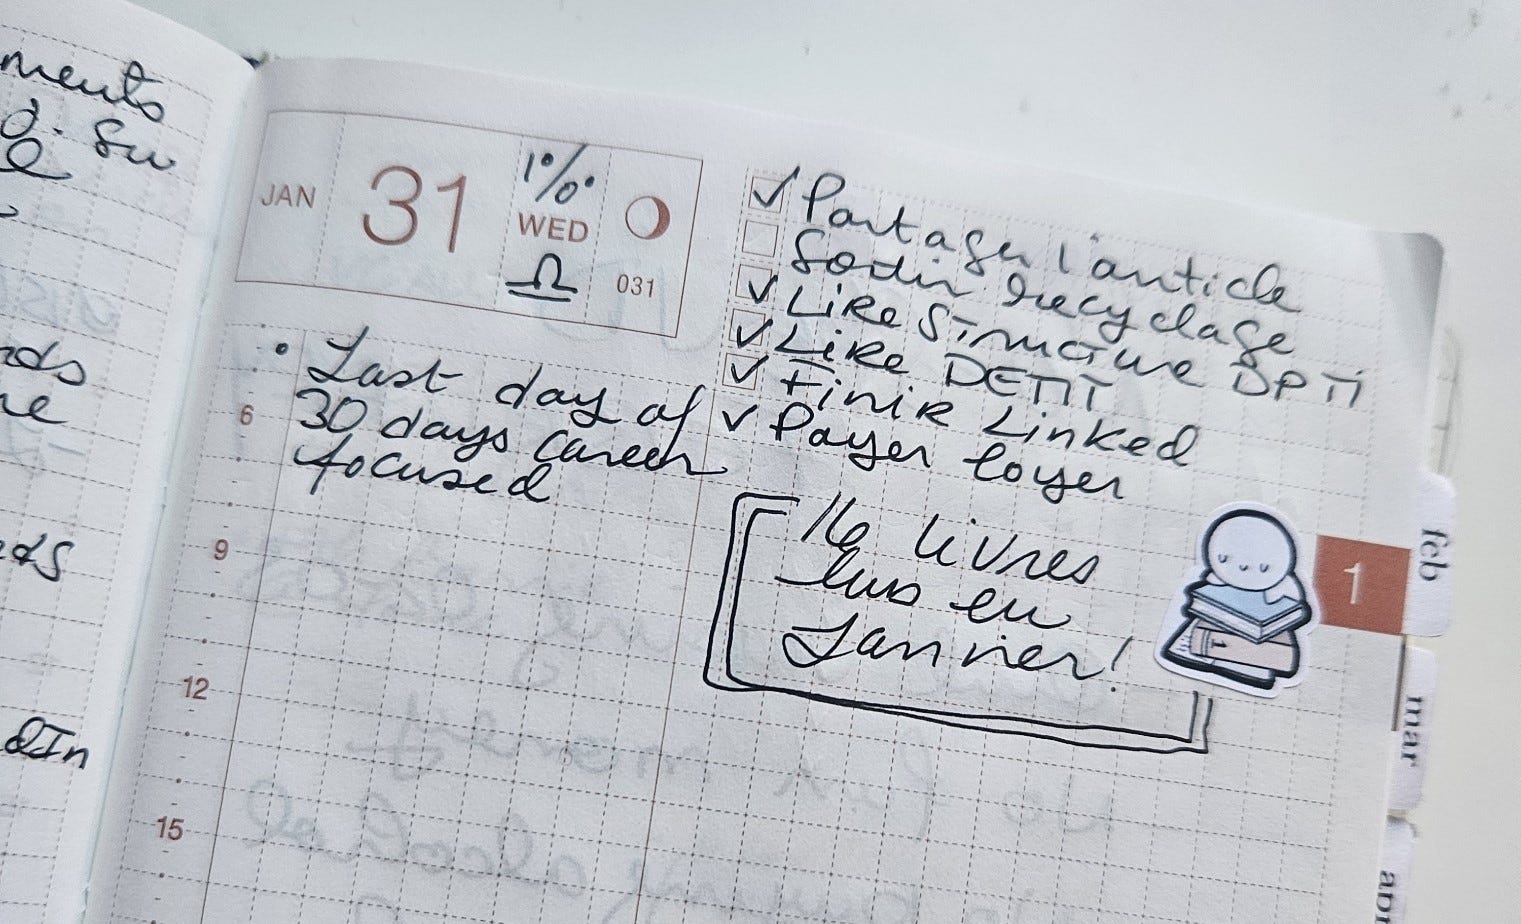 ments
d. Su
JAN 31 1% WED 031
✓ Partager l'article
Sortir recyclage
✓ Like Structure DPTI
✓ Like DETIT
✓ Finir Linked
✓ Payer loyer
• Last day of
30 days career
focused
16 livres
lus en
Janvier!
6
9
12
15
1
feb
mar
dIn